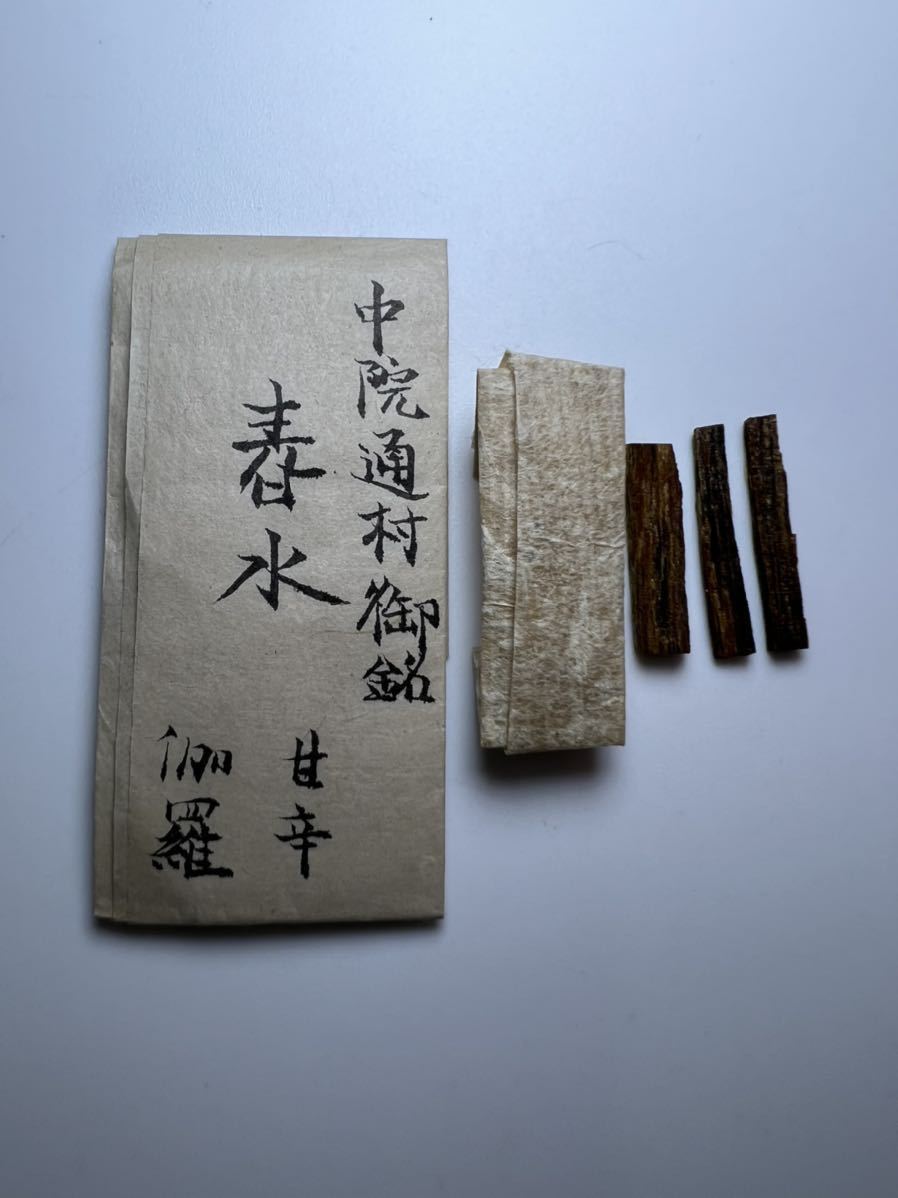 中院通村御銘
春水
甘辛
伽羅